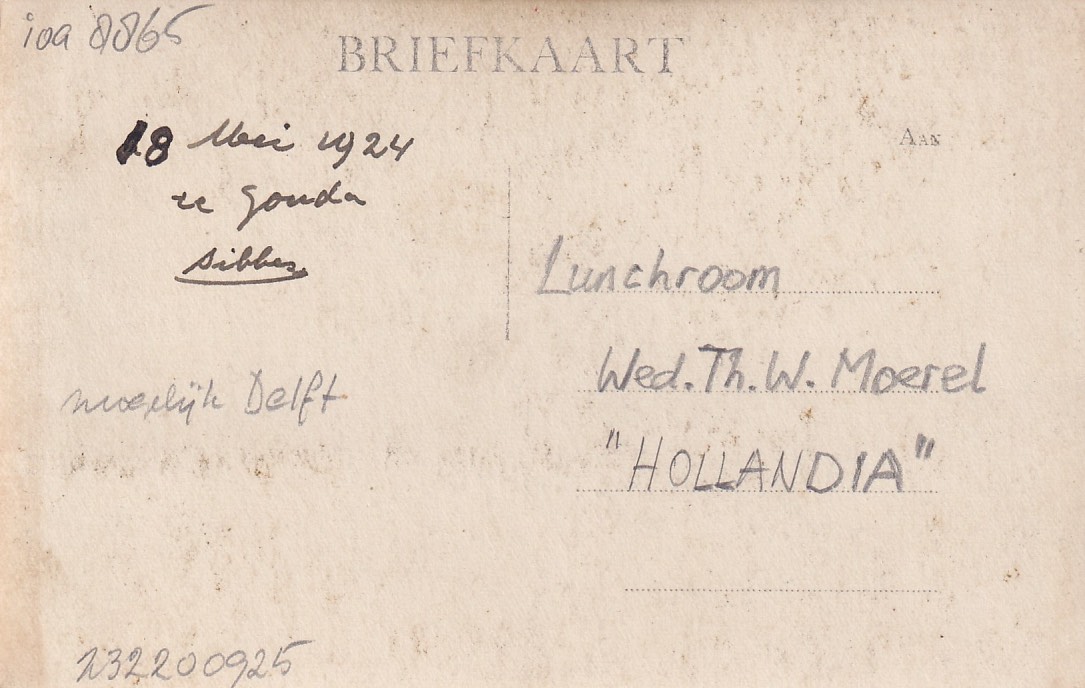 ioa 8865
BRIEFKAART
18 Mei 1924
te Gouda
Sibbes
AAN
Lunchroom
Wed. Th. W. Moerel
"HOLLANDIA"
mogelijk Delft
232200925